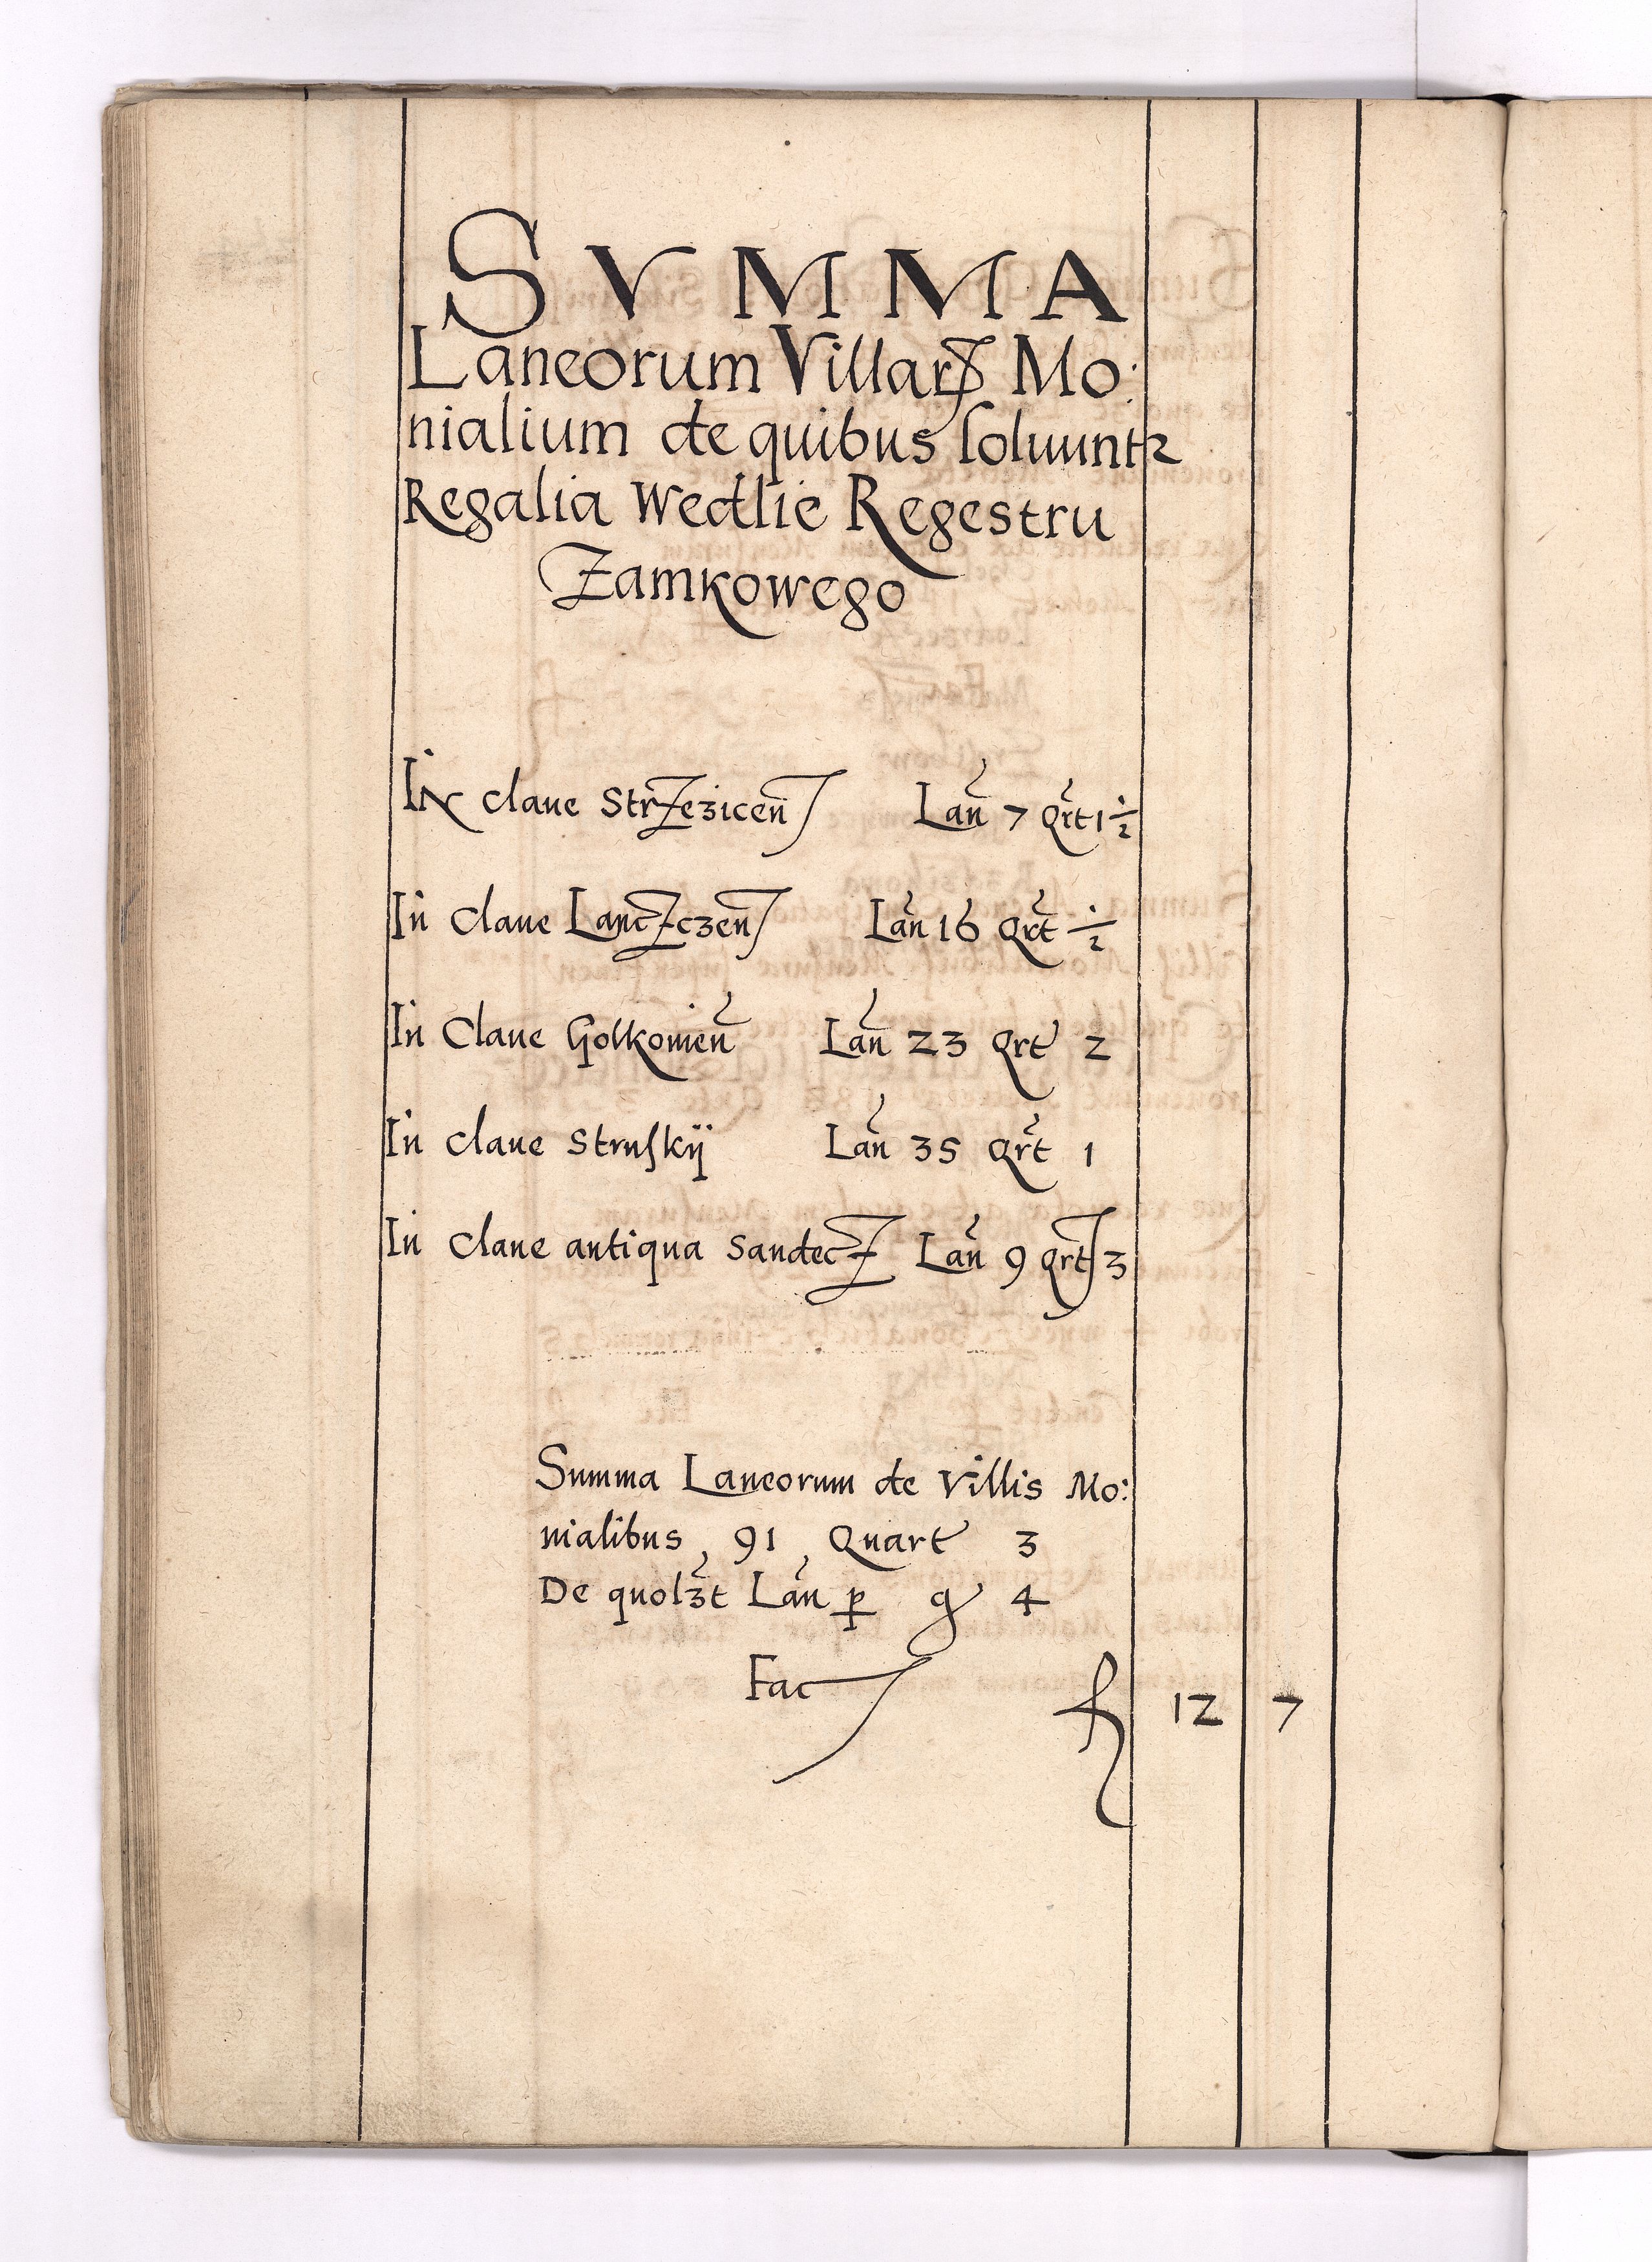 SVMMA
Laneorum Villarꝝ Mo:
nialium de quibus soluunt2
Regalia Wedlie Regestru
Zamkowego
In claue StrZezicen̄ Lan̄ 7 Qrt 1 ½
In Claue LancZczen̄ Lan̄ 16 Qrt ½
In Claue Golkouien̄ Lan̄ 23 Qrt 2
In Claue Struskÿ Lan̄ 35 Qrt 1
In Claue antiqua SandecZ Lan̄ 9 Qrt 3
Summa Laneorum de Villis Mo:
nialibus, 91, Quart 3
De quolꝫt Lan̄ ꝑ g 4
Fac f 12 7